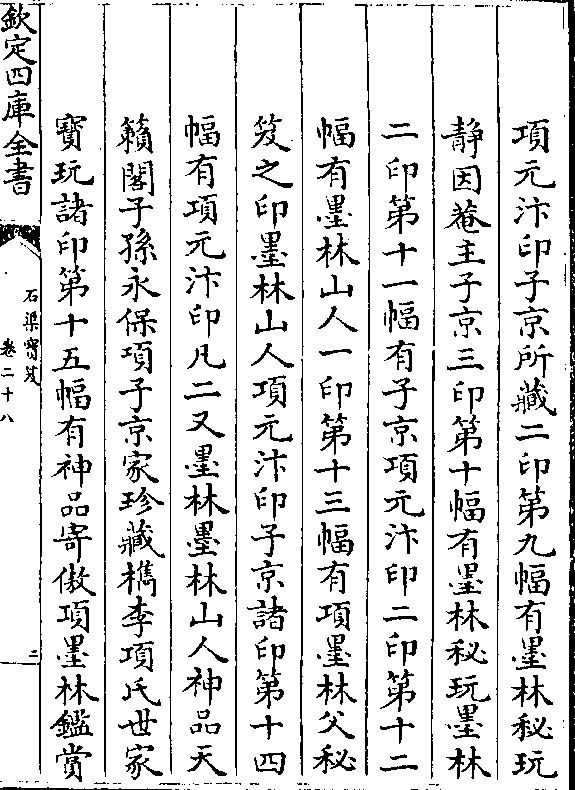 項元汴印子京所藏二印第九幅有墨林秘玩
静因菴主子京三印第十幅有墨林秘玩墨林
二印第十一幅有子京項元汴印二印第十二
幅有墨林山人一印第十三幅有項墨林父秘
笈之印墨林山人項元汴印子京諸印第十四
幅有項元汴印凡二又墨林墨林山人神品天
籟閣子孫永保項子京家珍藏檇李項氏世家
寳玩諸印第十五幅有神品寄傲項墨林鑑賞
欽定四庫全書
石渠寳笈
卷二十八
二